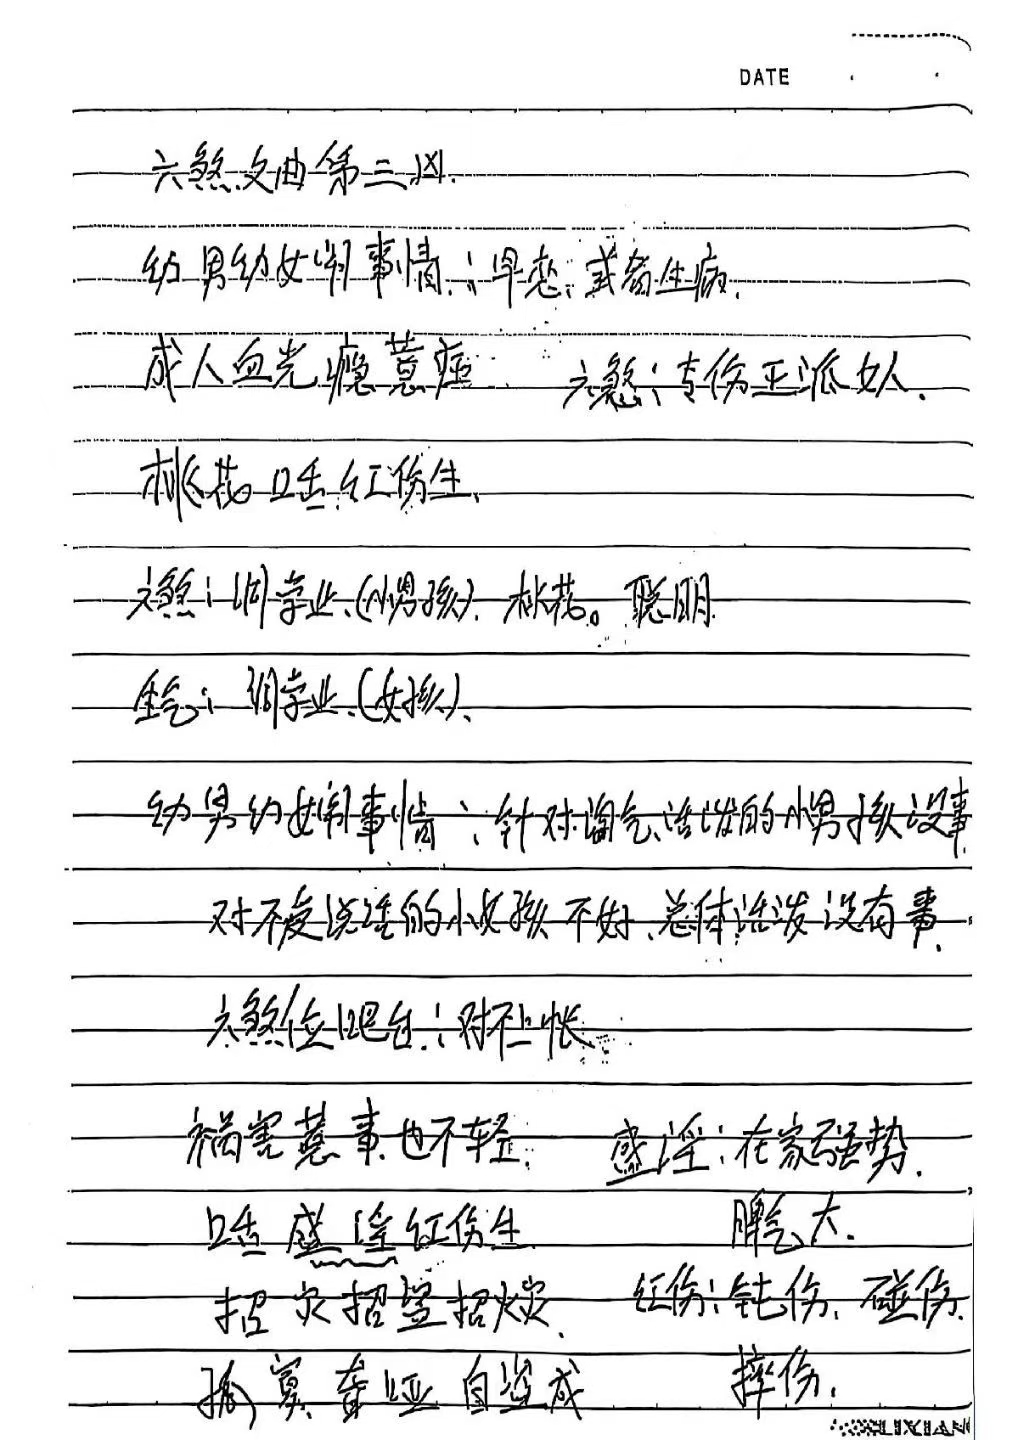 DATE
六煞文曲第三凶.
幼男幼女闹事情.:早恋、或者生病.
成人血光瘾莫症 六煞:专伤正派女人.
桃花口舌红伤生、
六煞:润学业、(小男孩). 桃花。聪明
生气: 润学业、(女孩).
幼男幼女闹事情:针对淘气、活泼的小男孩没事.
对不爱说话的小女孩不好、总体活泼没有事.
六煞位吧台:对不上帐
祸害莫事也不轻. 盛淫:在家强势.
口舌盛淫红伤生 脾气大.
招灾招盗招火灾. 红伤:钝伤、碰伤.
孤寡聋哑自 成 摔伤.
LIXIAN